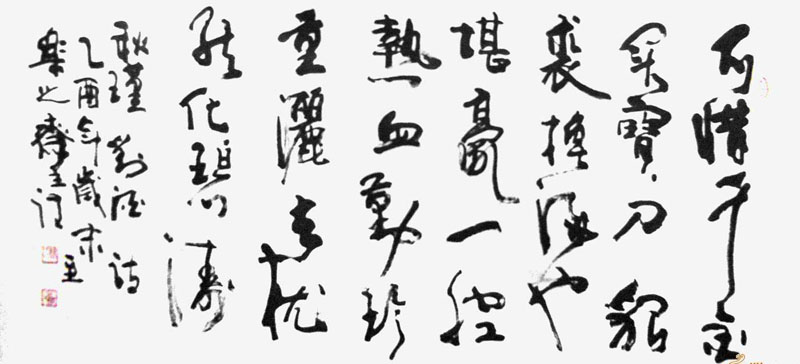 不惜千金
買寶刀貂
裘換酒也
堪豪一腔
熱血勤珍
重灑去猶
能化碧濤
秋瑾對酒詩
乙酉年歲末
樂之齋主